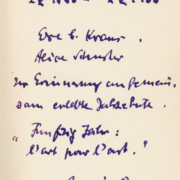 Eva S. Kraus.
Alice Schuster
Zur Erinnerung an gemein-
sam erlebte Jahrzehnte.
"Fünfzig Jahre:
L'art pour l'art."